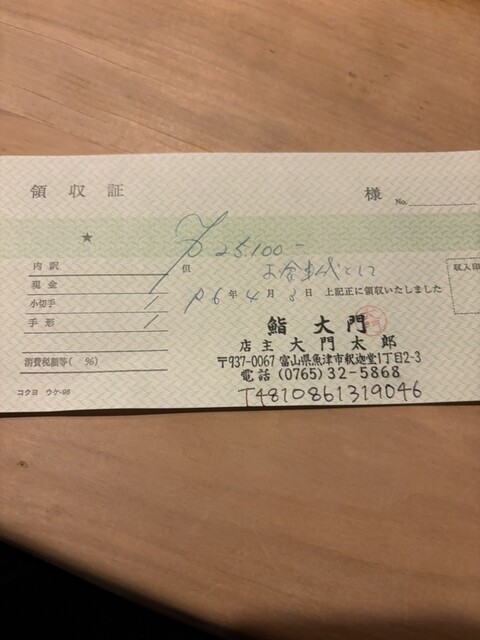 領収証
様 No.
★
¥25,100-
内訳
但 お食事代として
現金
R6年4月3日 上記正に領収いたしました
収入印
小切手
手形
鮨 大門
店主 大門太郎
消費税額等( %)
〒937-0067 富山県魚津市釈迦堂1丁目2-3
電話 (0765) 32-5868
コクヨ ウケ-98
T4810861319046